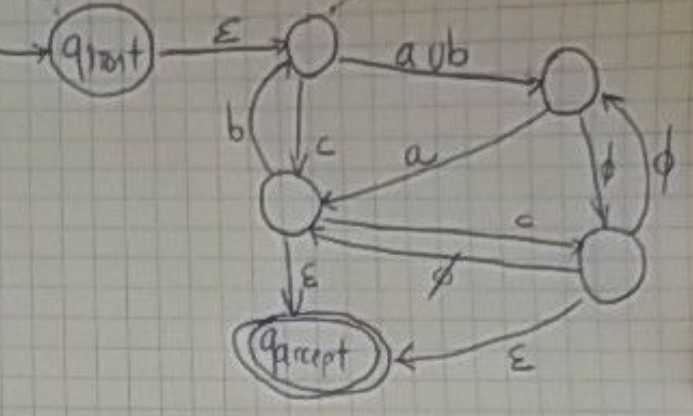 qstart
ε
a∪b
b
c
a
ϕ
ϕ
c
ϕ
ε
qaccept
ε